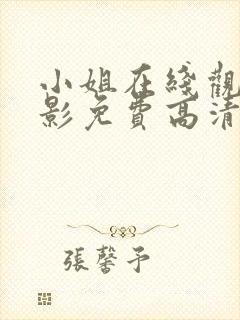 小姐在綫觀
影免費高清
張馨予